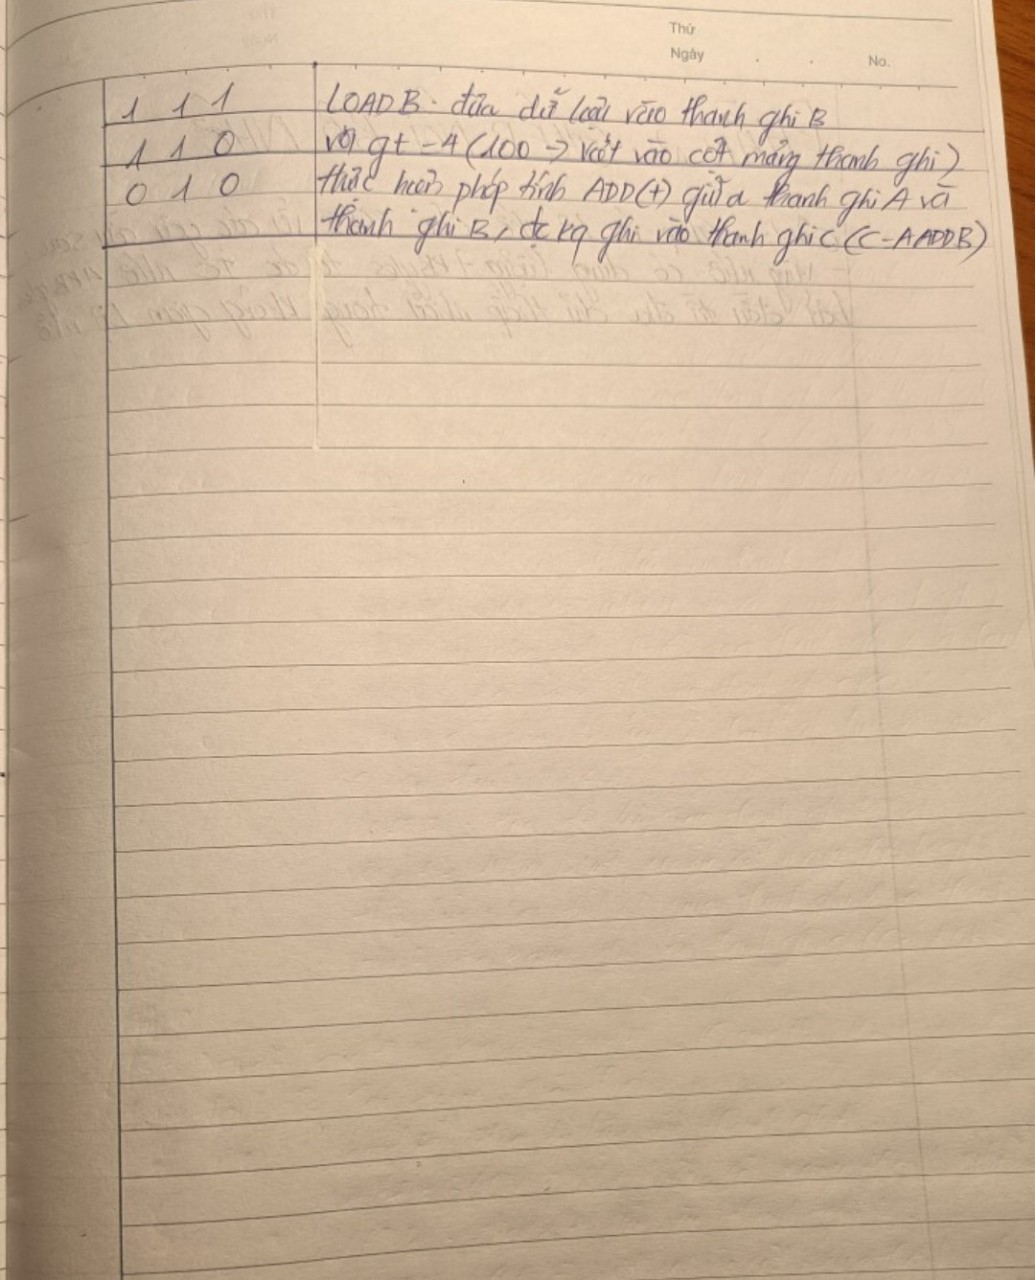 Thứ
Ngày . . No.
1 1 1 LOAD B. đưa dữ liệu vào thanh ghi B
1 1 0 với gt = 4 (100 → viết vào cột mảng thanh ghi)
0 1 0 thực hiện phép tính ADD(+) giữa thanh ghi A và
thanh ghi B, đc kq ghi vào thanh ghi C (C = A ADD B)